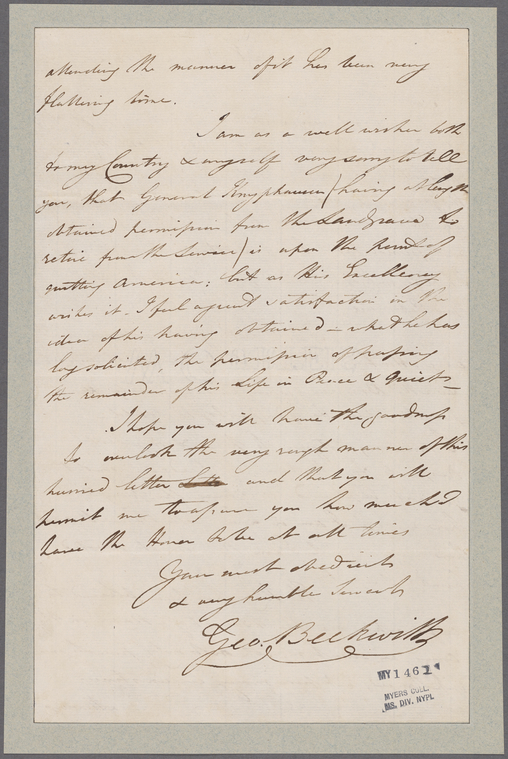 attending the manner of it has been very
flattering to me.
I am as a well wisher both
to my Country & myself very sorry to tell
you, that General Knyphausen (having at length
obtained permission from the Landgrave to
retire from the Service) is upon the point of
quitting America; but as His Excellency
wishes it, I feel a great satisfaction in the
idea of his having obtained – what he has
long solicited, the permission of passing
the remainder of his Life in Peace & Quiet –
I hope you will have the goodness
to overlook the very rough manner of this
hurried letter and that you will
permit me to assure you how much I
have the Honor to be at all times
Your most obedient
& very humble Servant
Geo. Beckwith
MY 1461
MYERS COLL.
MS. DIV. NYPL